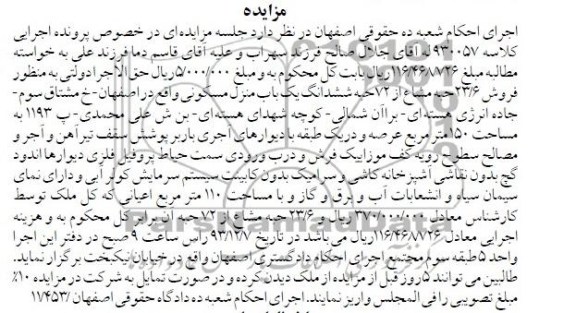 مزایده
اجرای احکام شعبه ده حقوقی اصفهان در نظر دارد جلسه مزایده‌ای در خصوص پرونده اجرایی
کلاسه ۹۳۰۰۵۷ له آقای جلال صالح فرزند سهراب و علیه آقای قاسم دما فرزند علی به خواسته
مطالبه مبلغ ۱۱۶/۴۶۸/۷۲۶ ریال بابت کل محکوم به و مبلغ ۵/۰۰۰/۰۰۰ ریال حق الاجرا دولتی به منظور
فروش ۲۳/۶ حبه مشاع از ۷۲ حبه ششدانگ یک باب منزل مسکونی واقع در اصفهان-خ مشتاق سوم-
جاده انرژی هسته‌ای- براآن شمالی-کوچه شهدای هسته‌ای- بن ش علی محمدی-پ ۱۱۹۳ به
مساحت ۱۵۰ متر مربع عرصه و در یک طبقه با دیوارهای آجری باربر پوشش سقف تیرآهن و آجر و
مصالح سطوح رویه کف موزاییک فرش و درب ورودی سمت حیاط پروفیل فلزی دیوارها اندود
گچ بدون نقاشی آشپزخانه کاشی و سرامیک بدون کابینت سیستم سرمایش کولر آبی و دارای نمای
سیمان سیاه و انشعابات آب و برق و گاز و با مساحت ۱۱۰ متر مربع اعیانی که کل ملک توسط
کارشناس معادل ۳۷۰/۰۰۰/۰۰۰ ریال و ۲۳/۶ حبه مشاع از ۷۲ حبه آن برابر کل محکوم به و هزینه
اجرایی معادل ۱۱۶/۴۶۸/۷۲۶ ریال می‌باشد در تاریخ ۹۳/۱۲/۷ راس ساعت ۹ صبح در دفتر این اجرا
واحد ۵ طبقه سوم مجتمع اجرای احکام دادگستری اصفهان واقع در خیابان نیکبخت برگزار نماید.
طالبین می توانند ۵ روز قبل از مزایده از ملک دیدن کرده و در صورت تمایل به شرکت در مزایده ۱۰٪
مبلغ تصویبی را فی المجلس واریز نمایند. اجرای احکام شعبه ده دادگاه حقوقی اصفهان /۱۱/۴۵۳
ParsNamadData